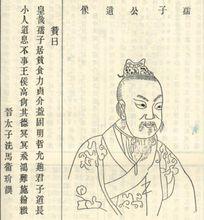 孺子公遺像
贊曰
皇哉孺子居貧食力貞介益固明哲允迪君子道長
小人道息不事王侯高尚其德冥冥飛鴻難施繒繳
晉太子洗馬衛玠撰